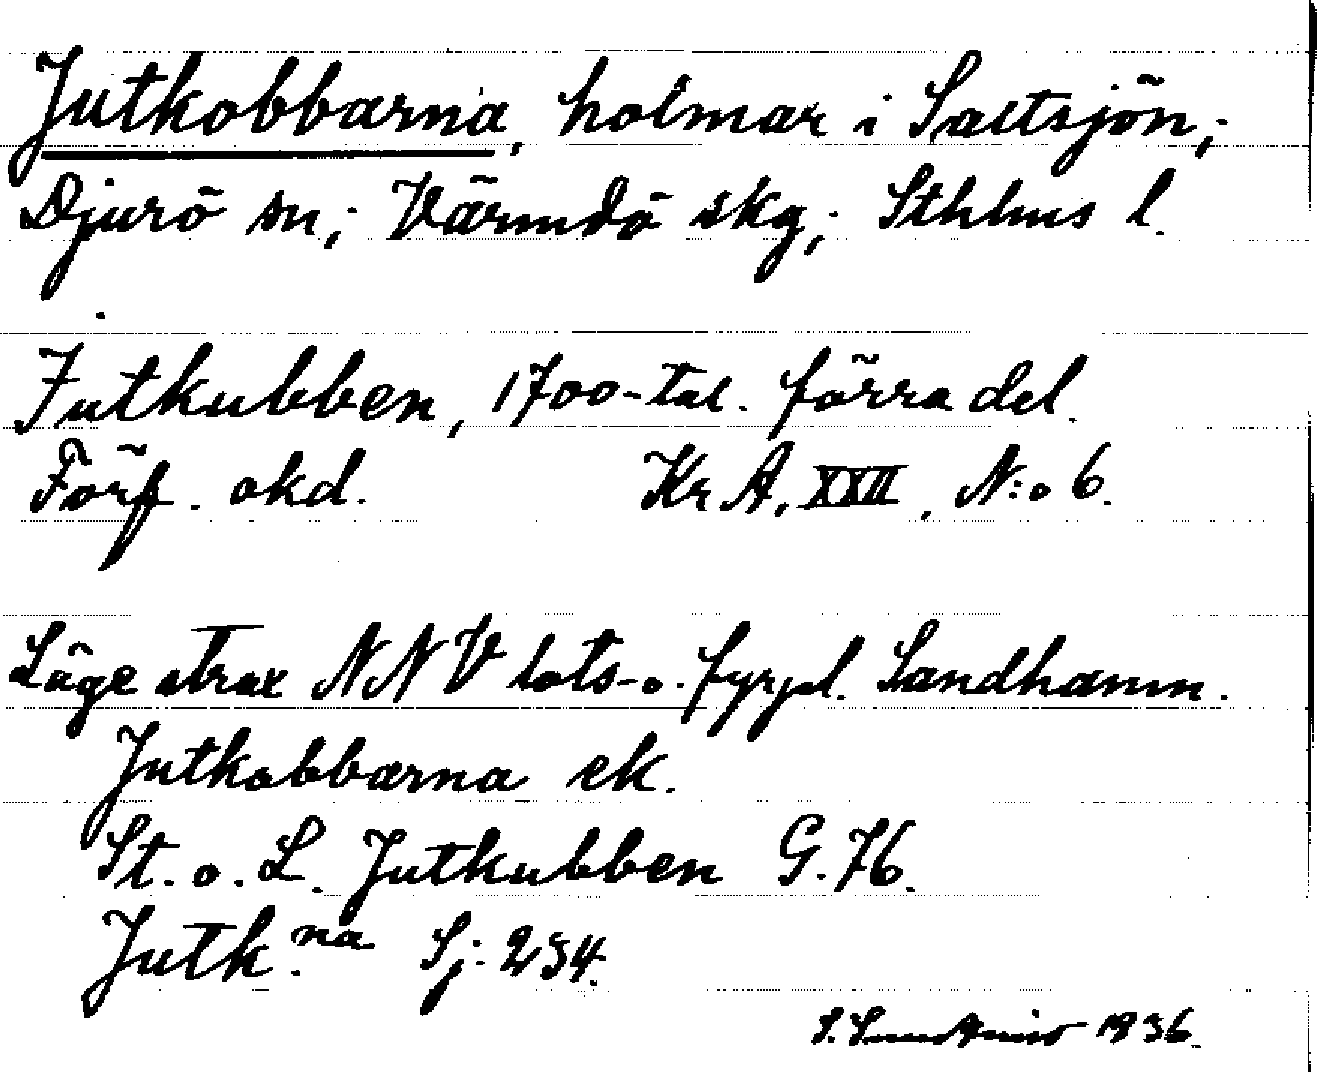 Jutkobbarna, holmar i Saltsjön;
Djurö sn; Värmdö skg; Sthlms l.
Jutkubben, 1700-tal. förra del.
Förf. okd. Kr. A. XXII, N:o 6.
Läge strax NNV lots- o. fyrpl. Sandhamn.
Jutkobbarna ek.
St. o. L. Jutkubben G. 76.
Jutk.na Sj: 234.
S. 1936.